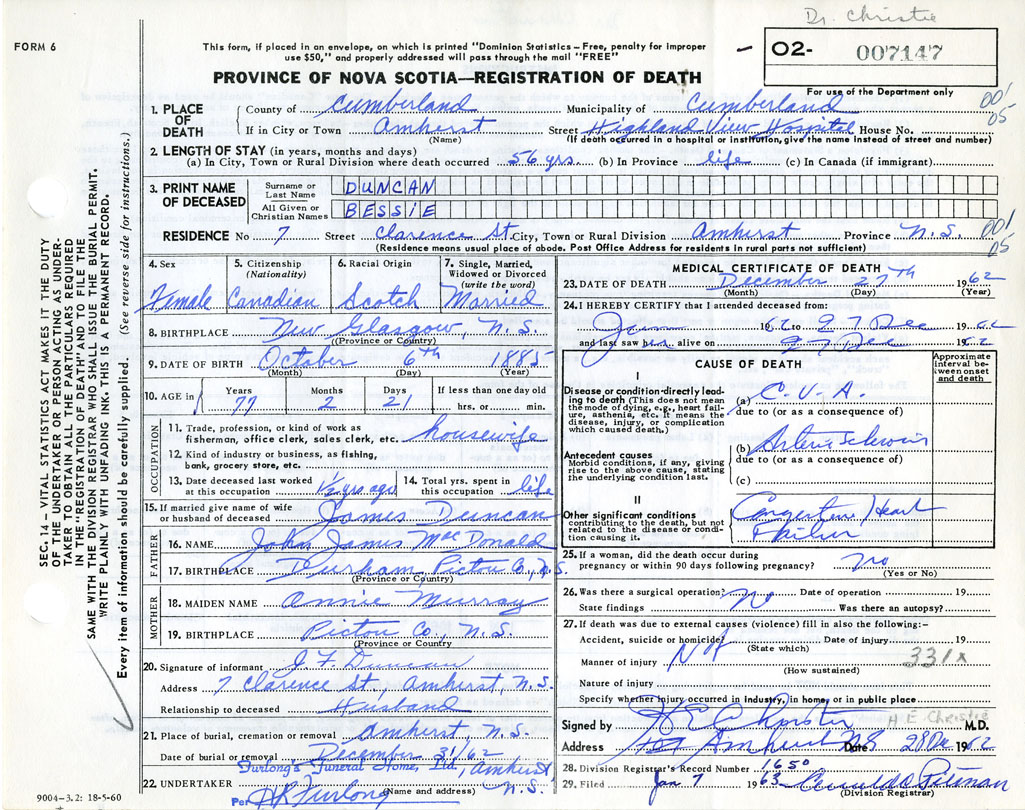 Dr. Christie
FORM 6
This form, if placed in an envelope, on which is printed "Dominion Statistics – Free, penalty for improper
use $50," and properly addressed will pass through the mail "FREE"
02- 007147
PROVINCE OF NOVA SCOTIA—REGISTRATION OF DEATH
For use of the Department only
1. PLACE OF DEATH
County of Cumberland Municipality of Cumberland
If in City or Town Amherst Street Highland View Hospital House No.
(Name) (If death occurred in a hospital or institution, give the name instead of street and number)
2. LENGTH OF STAY (in years, months and days)
(a) In City, Town or Rural Division where death occurred 56 yrs. (b) In Province life (c) In Canada (if immigrant)
3. PRINT NAME OF DECEASED
Surname or Last Name DUNCAN
All Given or Christian Names BESSIE
RESIDENCE No 7 Street Clarence St. City, Town or Rural Division Amherst Province N.S.
(Residence means usual place of abode. Post Office Address for residents in rural parts not sufficient)
001
05
001
05
4. Sex
Female
5. Citizenship
(Nationality)
Canadian
6. Racial Origin
Scotch
7. Single, Married,
Widowed or Divorced
(write the word)
Married
8. BIRTHPLACE New Glasgow, N.S.
(Province or Country)
9. DATE OF BIRTH October 6th 1885
(Month) (Day) (Year)
10. AGE in Years 77 Months 2 Days 21 If less than one day old
hrs. or min.
OCCUPATION
11. Trade, profession, or kind of work as
fisherman, office clerk, sales clerk, etc. housewife
12. Kind of industry or business, as fishing,
bank, grocery store, etc.
13. Date deceased last worked
at this occupation 1½ yrs ago
14. Total yrs. spent in
this occupation life
15. If married give name of wife
or husband of deceased James Duncan
FATHER
16. NAME John James MacDonald
17. BIRTHPLACE Durham Pictou Co., N.S.
(Province or Country)
MOTHER
18. MAIDEN NAME Annie Murray
19. BIRTHPLACE Pictou Co., N.S.
(Province or Country)
20. Signature of informant J F Duncan
Address 7 Clarence St., Amherst, N.S.
Relationship to deceased Husband
21. Place of burial, cremation or removal Amherst, N.S.
Date of burial or removal December 31/62
Furlong's Funeral Home, Ltd., Amherst
22. UNDERTAKER N.S.
(Name and address)
Per Furlong
9004–3.2: 18-5-60
MEDICAL CERTIFICATE OF DEATH
23. DATE OF DEATH December 27th 1962
(Month) (Day) (Year)
24. I HEREBY CERTIFY that I attended deceased from:
1962 to 27 Dec 1962
and last saw her alive on 27 Dec 1962
CAUSE OF DEATH
Approximate
interval be-
tween onset
and death
I
Disease or condition directly lead-
ing to death (This does not mean
the mode of dying, e.g., heart fail-
ure, asthenia, etc. It means the
disease, injury, or complication
which caused death.)
(a) C.V.A.
due to (or as a consequence of)
(b)
due to (or as a consequence of)
(c)
Antecedent causes
Morbid conditions, if any, giving
rise to the above cause, stating
the underlying condition last.
II
Other significant conditions
contributing to the death, but not
related to the disease or condi-
tion causing it.
Congestive Heart
Failure
25. If a woman, did the death occur during
pregnancy or within 90 days following pregnancy? no
(Yes or No)
26. Was there a surgical operation? No Date of operation 19
State findings Was there an autopsy?
27. If death was due to external causes (violence) fill in also the following:–
Accident, suicide or homicide? Date of injury 19
(State which)
Manner of injury Not 331x
(How sustained)
Nature of injury
Specify whether injury occurred in industry, in home, or in public place
Signed by H E Christie H E Christie M.D.
Address Amherst NS Date 28 Dec 1962
28. Division Registrar's Record Number 1650
29. Filed Jan 7 1963
(Division Registrar)
SEC. 14 – VITAL STATISTICS ACT MAKES IT THE DUTY
OF THE UNDERTAKER OR PERSON ACTING AS UNDER-
TAKER TO OBTAIN ALL THE PARTICULARS REQUIRED
IN THE "REGISTRATION OF DEATH" AND TO FILE THE
SAME WITH THE DIVISION REGISTRAR WHO SHALL ISSUE THE BURIAL PERMIT.
WRITE PLAINLY WITH UNFADING INK. THIS IS A PERMANENT RECORD.
Every item of information should be carefully supplied. (See reverse side for instructions.)